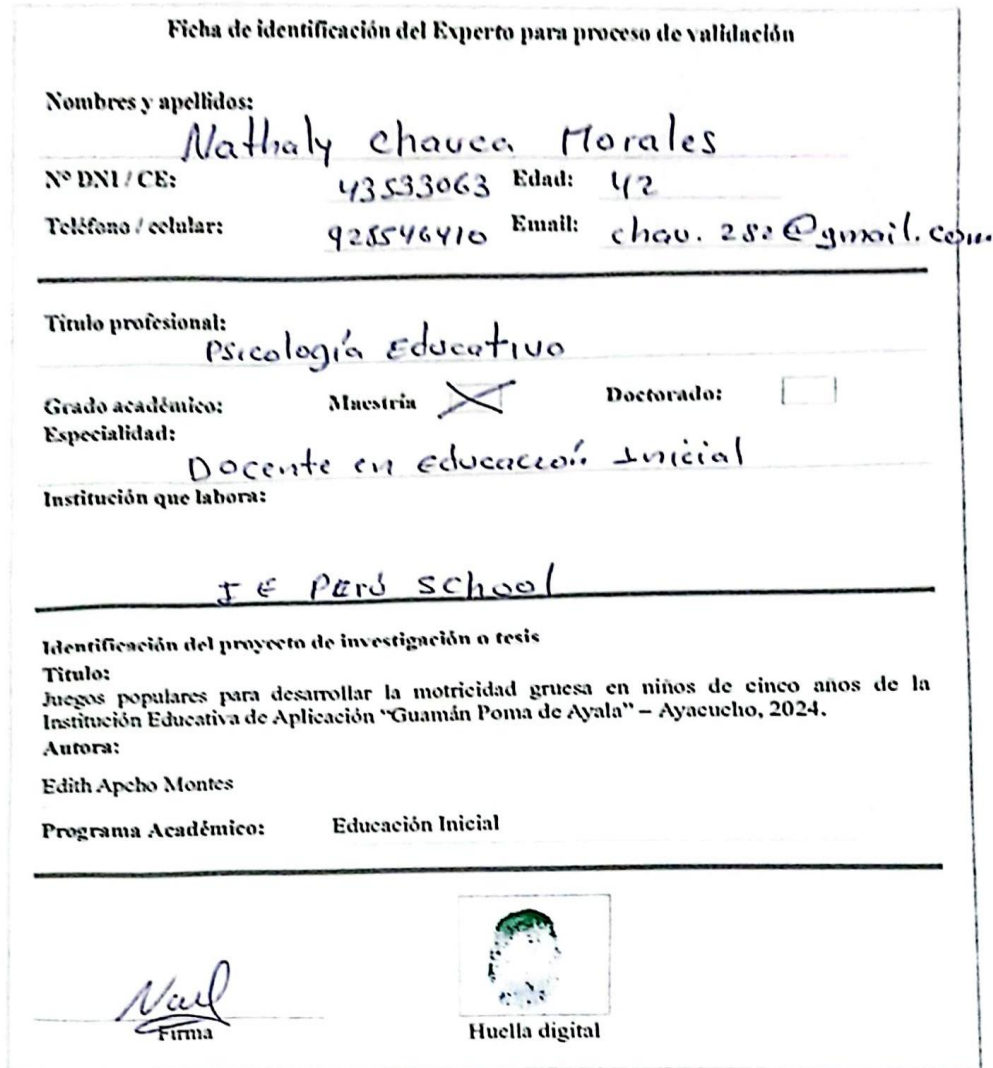 Ficha de identificación del Experto para proceso de validación
Nombres y apellidos:
Nathaly Chauca Morales
Nº DNI / CE: 43533063 Edad: 42
Teléfono / celular: 928546410 Email: chau.280@gmail.com
Título profesional:
Psicología Educativo
Grado académico: Maestría Doctorado:
Especialidad:
Docente en Educación Inicial
Institución que labora:
IE Perú School
Identificación del proyecto de investigación o tesis
Título:
Juegos populares para desarrollar la motricidad gruesa en niños de cinco años de la
Institución Educativa de Aplicación “Guamán Poma de Ayala” – Ayacucho, 2024.
Autora:
Edith Apcho Montes
Programa Académico: Educación Inicial
Firma
Huella digital